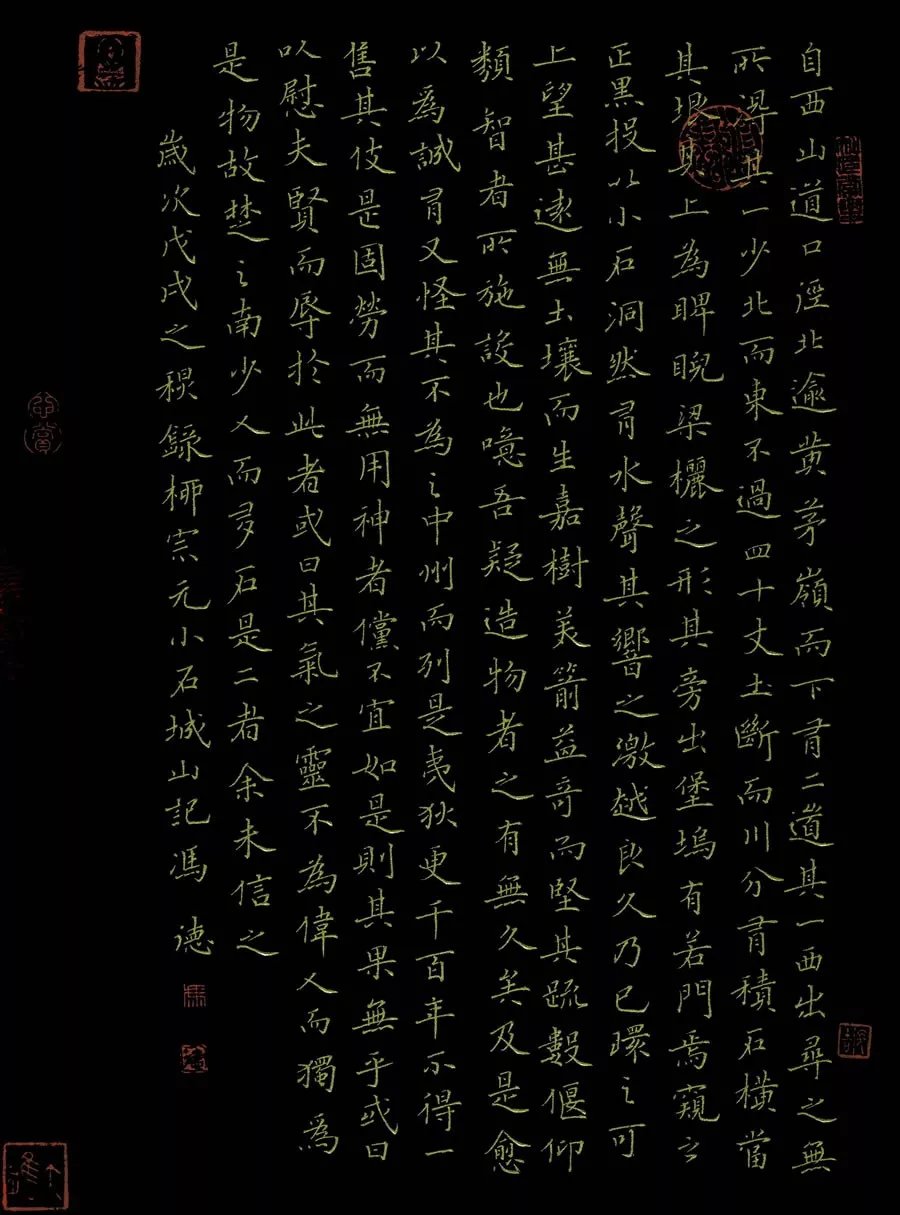 自西山道口徑北逾黄茅嶺而下有二道其一西出尋之無
所得其一少北而東不過四十丈土斷而川分有積石橫當
其垠其上為睥睨梁欐之形其旁出堡塢有若門焉窺之
正黑投以小石洞然有水聲其響之激越良久乃已環之可
上望甚遠無土壤而生嘉樹美箭益奇而堅其疏數偃仰
類智者所施設也噫吾疑造物者之有無久矣及是愈
以為誠有又怪其不為之中州而列是夷狄更千百年不得一
售其伎是固勞而無用神者儻不宜如是則其果無乎或曰
以慰夫賢而辱於此者或曰其氣之靈不為偉人而獨為
是物故楚之南少人而多石是二者余未信之
歲次戊戌之秋錄柳宗元小石城山記馮 德